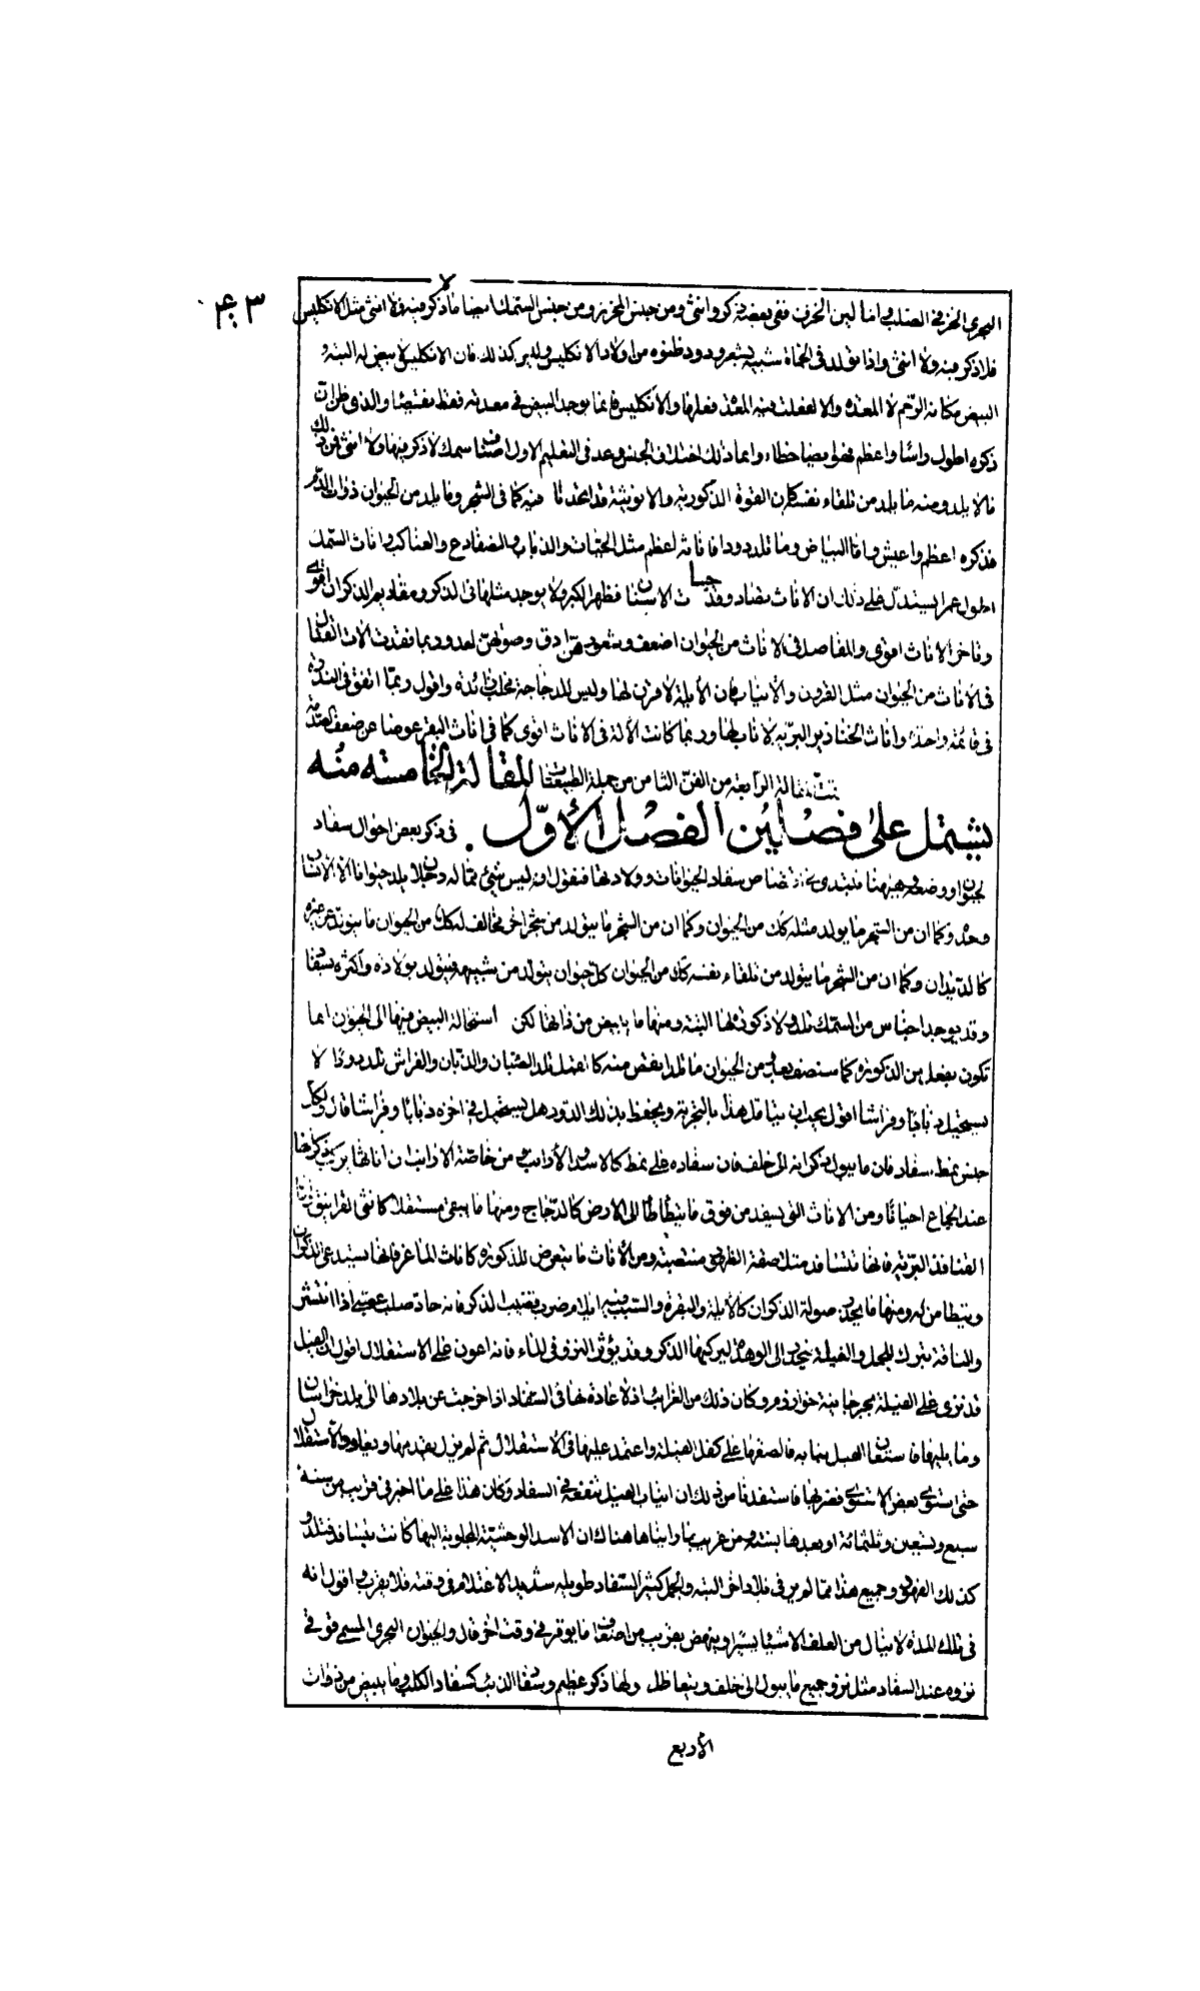 ٤٠٣
البحري الخزفي الصلب واما لين الخزف ففي بعضه ذكر وانثى ومن جنس المحزز ومن جنس السمك ايضا ما لا ذكر فيه ولا انثى مثل الانكليس
فلا ذكر فيه ولا انثى واذا تولد في الحماة شبيه بشعر ودود ظنوه من اولاد الانكليس وليس كذلك فان الانكليس لا بيض له البتة و
البيض مكانه الرحم لا المعدة والا لفعلت فيه المعدة فعلها والانكليس فانما يوجد البيض في معدته فقط
ذكره اطول راسا واعظم فهو ايضا خطاء وانما ذلك اختلاف الجنس وعد في التعليم الاول اصنافا سمك لا ذكر فيها ولا انثى فمن ذلك
ما لا يلد ومنه ما يلد من تلقاء نفسه كان القوة الذكورية والانوثية قد اتحدتا فيه كما في الشجر وما يلد من الحيوان ذوات الدم
فذكره اعظم واعيش واما البياض وما تلد دودا فاناثه اعظم مثل الحيات والذباب والضفادع والعناكب واناث السمك
اطول عمرا يستدل على ذلك ان الاناث تصاد وقد جسات الاسنان فظهر الكبر ولا يوجد مثلها في الذكور ومقاديم الذكران اقوى
وماخر الاناث اقوى والمفاصل في الاناث من الحيوان اضعف وشعورهن ادق وصوتهن احد وربما فقدت الات القتال
في الاناث من الحيوان مثل القرون والانياب فان الايلة لا قرن لها وليس للدجاجة مخلب زائدة واقول ربما اتفق في الندرة
في قائمة واحدة واناث الخنازير البرية لا ناب لها وربما كانت الالة في الاناث اقوى كما في اناث البقر عوضا عن ضعف
تمت المقالة الرابعة من الفن الثامن من جملة الطبيعيات المقالة الخامسة منه
يشتمل على فصلين الفصل الاول في ذكر بعض احوال سفاد
الحيوان ووضعه وهيهنا نبتدي في اقتصاص سفاد الحيوانات وولادها فنقول انه ليس شئ مما له دخلان يلد حيوانا الا الانسان
وحده وكما ان من الشجر ما يولد مثله كذلك من الحيوان وكما ان من الشجر ما يتولد من شجر اخر مخالف له كذلك من الحيوان ما يتولد عن غيره
كالديدان وكما ان من الشجر ما يتولد من تلقاء نفسه كذلك من الحيوان كل حيوان يتولد من شبيهه فيتولد بولادة واكثره بسفاد
وقد يوجد اجناس من السمك تلد ولا ذكورة لها البتة ومنها ما يبيض من ذاتها لكن استحالة البيض منها الى الحيوان انما
تكون بفعل من الذكورة كما سنصف بعد ومن الحيوان ما تلد انقص منه كالقمل تلد الصئبان والذبان والفراش تلد دودا لا
يستحيل ذبابا وفراشا اقول يجب ان يتامل هذا بالتجربة ويحفظ بذلك الدود هل يستحيل في اخره ذبابا وفراشا قال ولكل
جنس نمط سفاد فان ما يبول ذكرانه الى خلف فان سفاده على نمط كالاسد والارانب ومن خاصة الارانب ان اناثها تركب ذكرانها
عند الجماع احيانا ومن الاناث التي يسفد من فوق ما يتطاطا الى الارض كالدجاج ومنها ما يبقى مستقلا كانثى الغرانيق واناث
القنافذ البرية فانها تتسافد متلاصقة الظهور منتصبة ومن الاناث ما يتعرض للذكورة كاناث الماعز فانها يستدعي الذكران
ويتطامن له ومنها ما يجذبه صولة الذكران كالايلة والبقرة والسبب فيه ايلام صرب قضيب الذكر فانه حاد صلب عصبي اذا انتشر
والناقة تبرك للجمل والفيلة تنحدر الى الوهدة ليركبها الذكر وقد يؤثر النزو في الماء فانه اعون على الاستقلال اقول ان الفيل
قد نزى على الفيلة بجرجانية خوارزم وكان ذلك من الغرائب اذ لا عادة لها في السفاد اذا اخرجت عن بلادها الى بلد خراسان
وما يليها فاستعان الفيل بنابه فالصقها على كفل الفيلة واعتمد عليها في الاستقلال ثم لم يزل يقدمها ويعاود الاستقلال
حتى استوى بعض الاستواء فضربها فاستفدنا من ذلك ان انياب الفيل تنفعه في السفاد وكان هذا على ما اخبر في قريب من سنة
سبع وتسعين وثلثمائة او بعدها بسنة ومن غريب ما راينا هناك ان الاسد الوحشية المجلوبة اليها كانت يتسافد فتلد و
كذلك الفهود وجميع هذا مما لم ير في بلاد اخر البتة والجمل كثير السفاد طويله شديد الاغتلام في وقته فلا يقرب واقول انه
في تلك المدة لا ينال من العلف الا شيئا يسيرا وينهض بقريب من اضعاف ما يوقر في وقت اخر قال والحيوان البحري المسمى فوقي
نزوه عند السفاد مثل نزو جميع ما يبول الى خلف ويتعاظل ولها ذكر عظيم وسفاد الذئب كسفاد الكلب وما يبيض من ذوات
الاربع